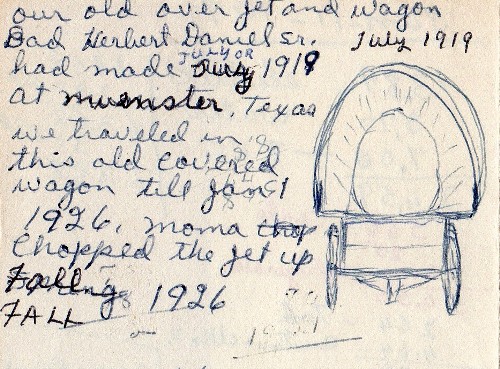 our old over jet and wagon
Dad Herbert Daniel Sr.
July 1919
JULY OR
had made July 1919
at muenster, Texas
we traveled in
this old covered
wagon till Jan 1
1926, moma chop
Chopped the jet up
Fall 1926
FALL